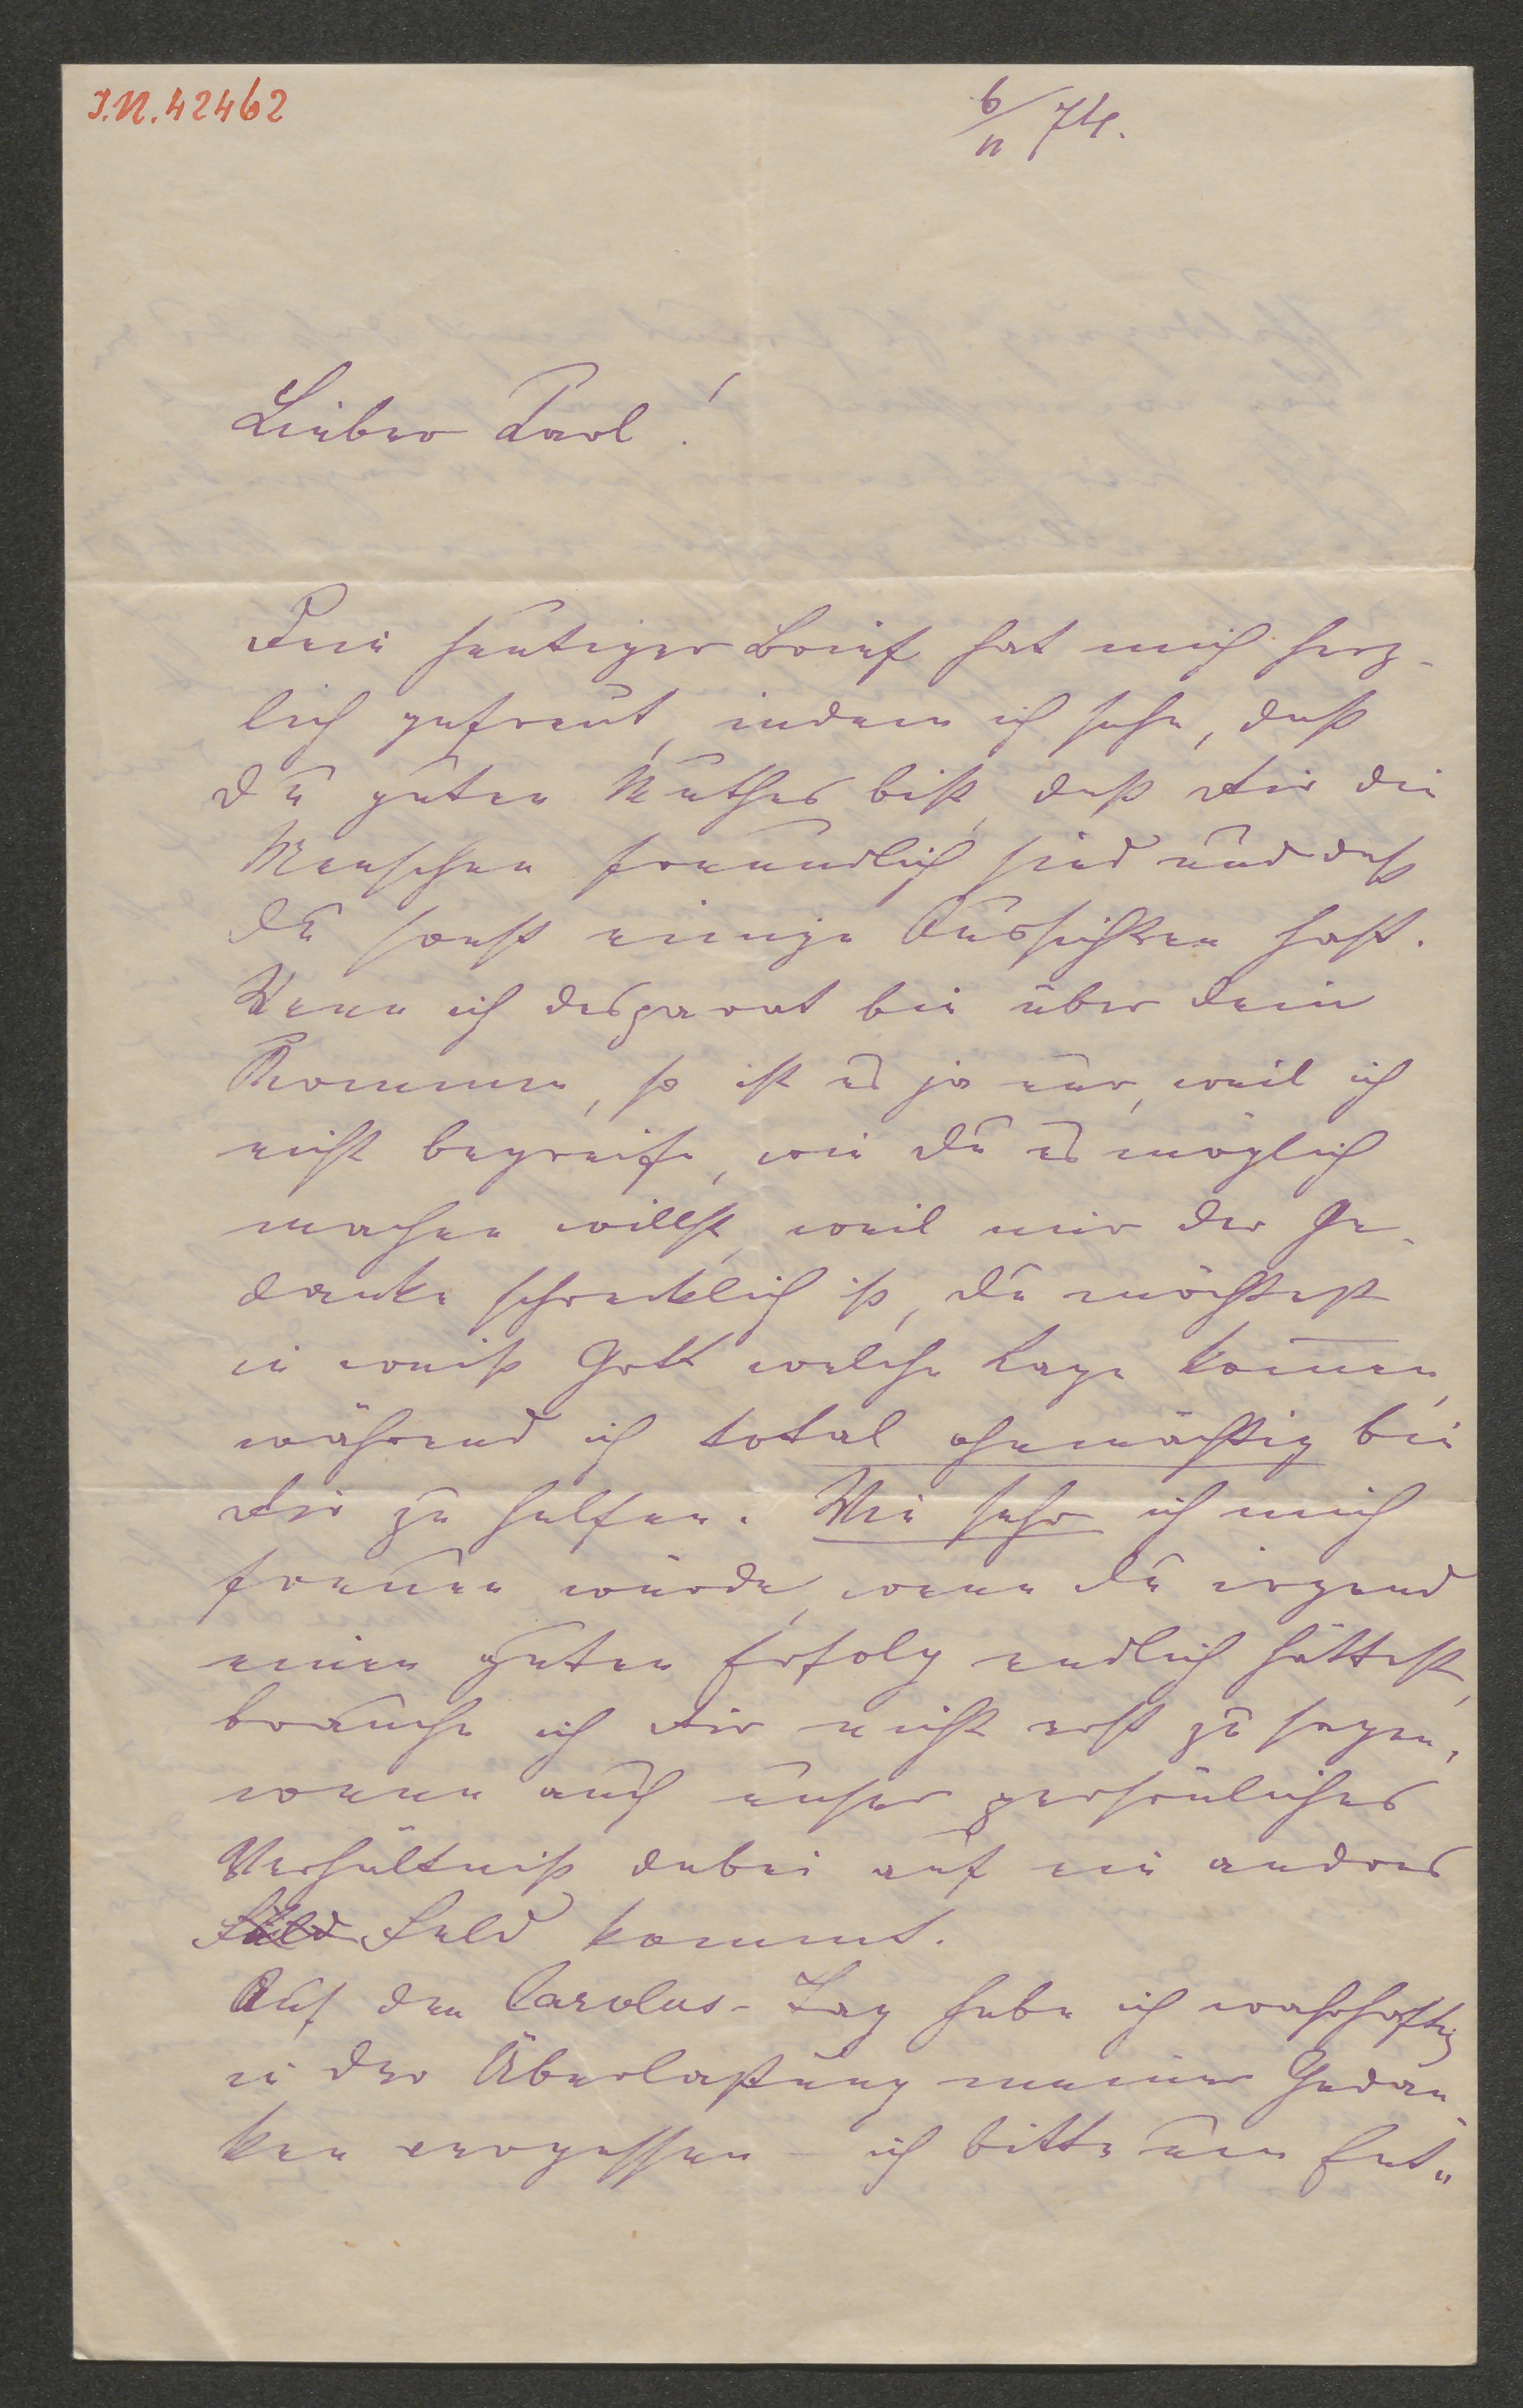 I.N. 42462
6/11 74.
Lieber Karl!
Dein heutiger Brief hat mich herz-
lich gefreut, indem ich sehe, daß
Du guten Muthes bist, daß Dir die
Menschen freundlich sind und daß
Du sonst einige Aussichten hast.
Wenn ich desparat bin über Dein
Kommen, so ist es ja nur, weil ich
nicht begreife, wie Du es möglich
machen willst, weil mir der Ge-
danke schrecklich ist, Du möchtest
in weiß Gott welche Lage kom̅en,
während ich total ohnmächtig bin
Dir zu helfen. Wie sehr ich mich
freuen würde, wenn Du irgend
einen guten Erfolg endlich hättest,
brauche ich Dir nicht erst zu sagen,
wenn auch unser persönliches
Verhältniß dabei auf ein andres
Feld Feld kommt.
Auf den Carolus-Tag habe ich wahrhaftig
in der Überlastung meiner Gedan-
ken vergessen – ich bitte um Ent-